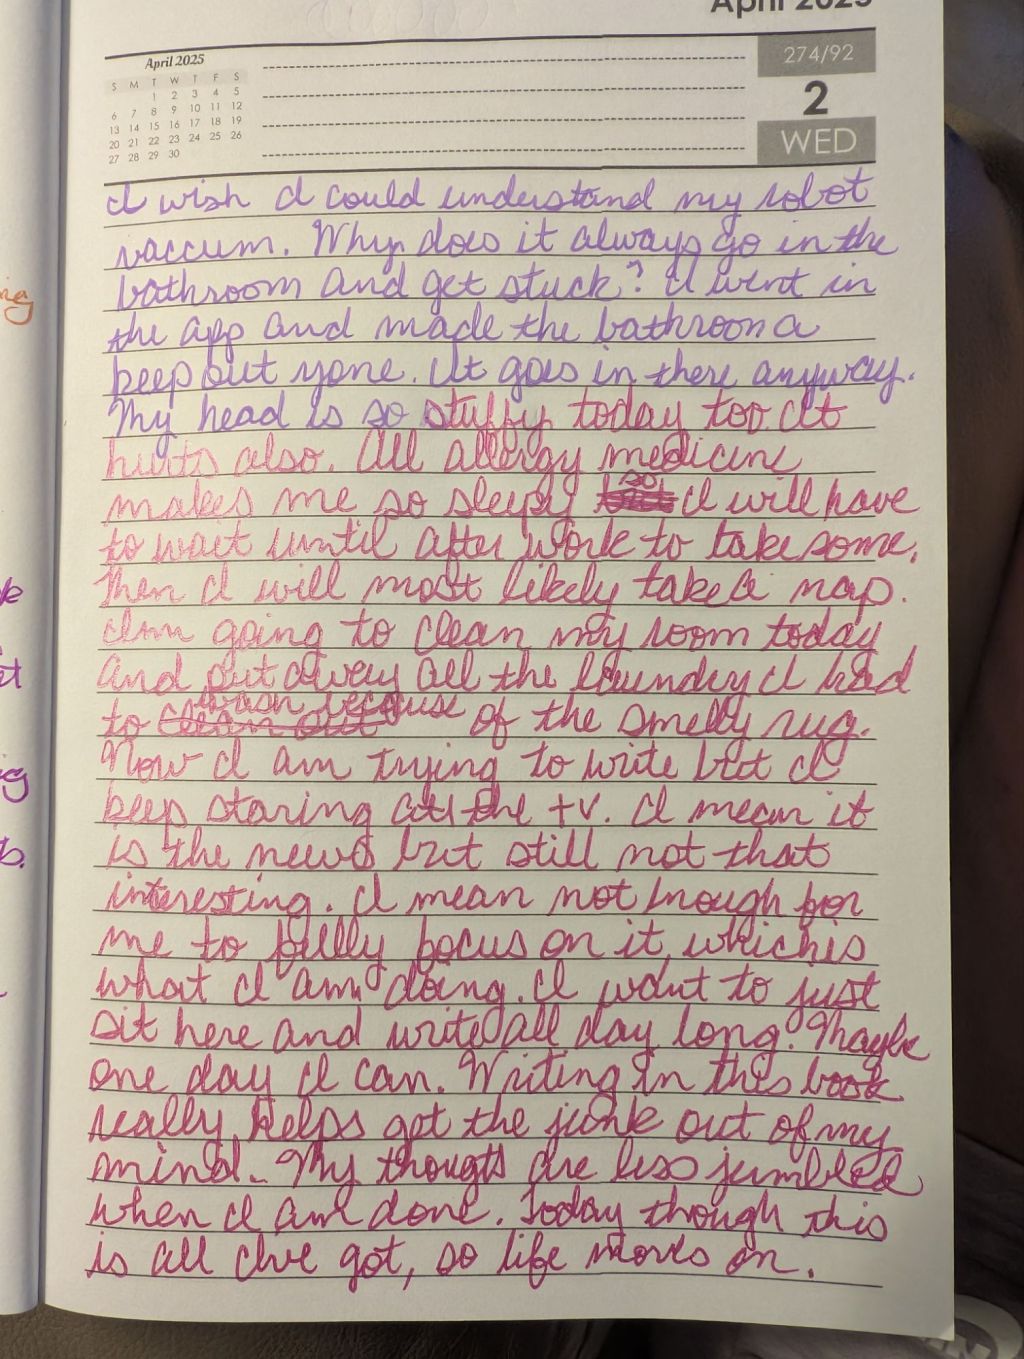 April 2025
April 2025
S M T W T F S
1 2 3 4 5
6 7 8 9 10 11 12
13 14 15 16 17 18 19
20 21 22 23 24 25 26
27 28 29 30
274/92
2
WED
I wish I could understand my robot
vaccum. Why does it always go in the
bathroom and get stuck? I went in
the app and made the bathroom a
keep out zone. It goes in there anyway.
My head is so stuffy today too. It
hurts also. All allergy medicine
makes me so sleepy so I will have
to wait until after work to take some.
Then I will most likely take a nap.
I am going to clean my room today
and put away all the laundry I had
to wash because of the smelly rug.
Now I am trying to write but I
keep staring at the tv. I mean it
is the news but still not that
interesting. I mean not enough for
me to fully focus on it, which is
what I am doing. I want to just
sit here and write all day long. Maybe
one day I can. Writing in this book
really helps get the junk out of my
mind. My thougts are less jumbled
when I am done. Today though this
is all I've got, so life moves on.
ng
ng